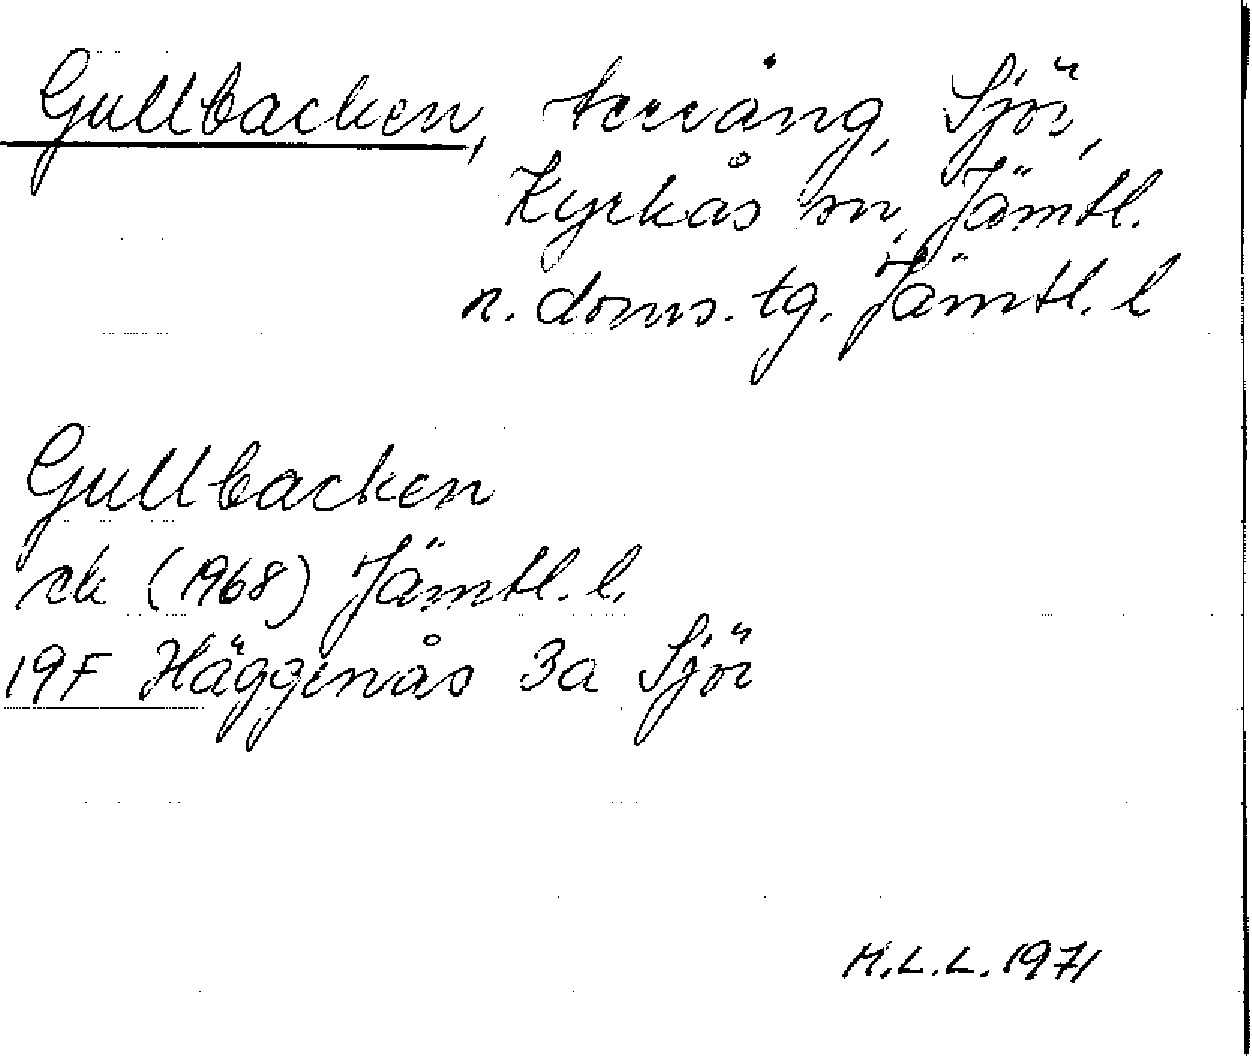 Gullbacken, terräng, Sjör,
Kyrkås sn, Jämtl.
n. doms. tg. Jämtl. l
Gullbacken
ek (1968) Jämtl. l.
19F Häggenås 3a Sjör
M.L.L. 1971